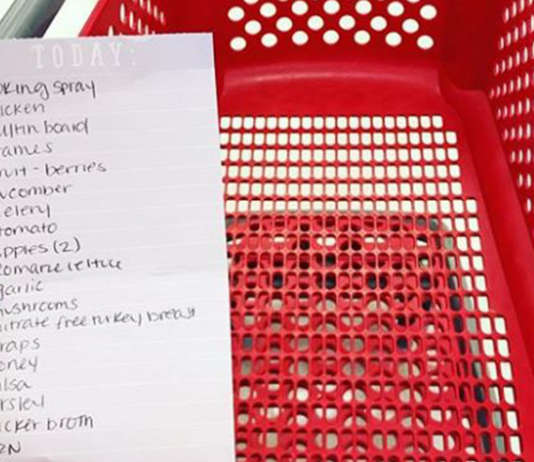 TODAY:
oking spray
icken
ulltin board
ames
uit - berries
ucomber
elery
tomato
pples (2)
omaine lettuce
garlic
mushrooms
nitrate free turkey breast
raps
oney
lsa
rsley
icken broth